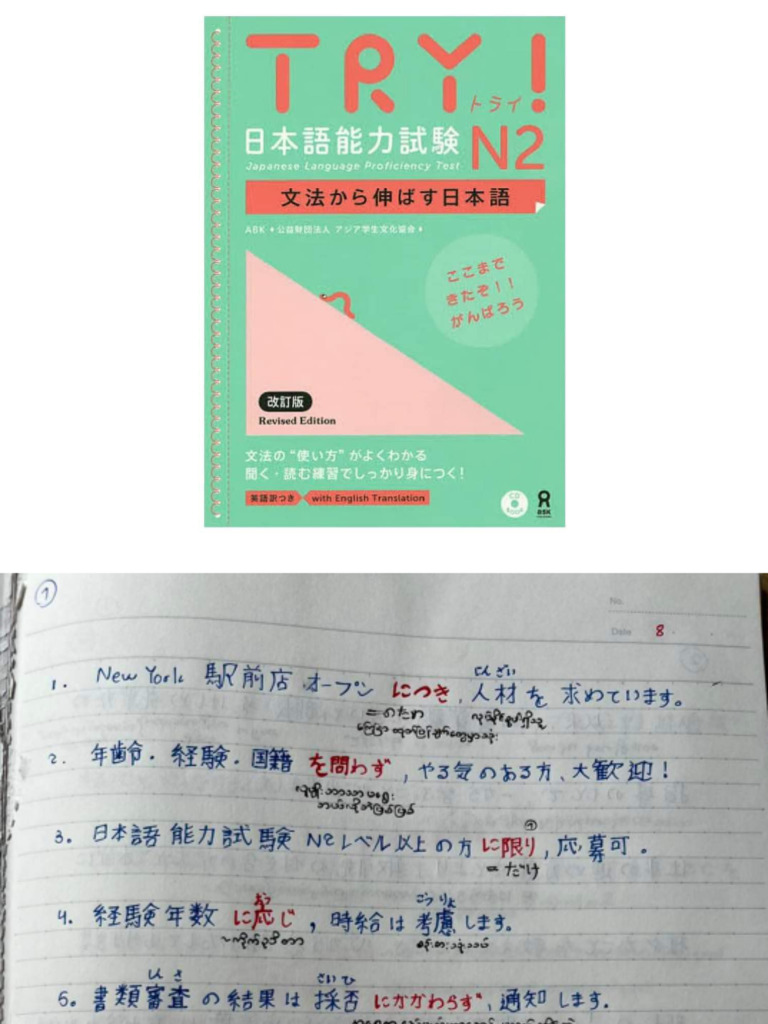 TRY!
トライ
日本語能力試験 N2
Japanese Language Proficiency Test
文法から伸ばす日本語
ABK ◆公益財団法人 アジア学生文化協会◆
ここまで
きたぞ!!
がんばろう
改訂版
Revised Edition
文法の“使い方”がよくわかる
聞く・読む練習でしっかり身につく!
英語訳つき with English Translation
CD BOOK
ASK
①
No.
Date 8
じんざい
1. New York 駅前店 オープン につき, 人材を 求めています。
=のため
2. 年齢・経験・国籍 を問わず, やる気のある方、大歓迎!
3. 日本語能力試験 N2レベル以上の方に限り, 応募可。
=だけ
おう こうりょ
4. 経験年数 に応じ, 時給は考慮します。
しんさ さいひ
5. 書類審査の結果は採否にかかわらず, 通知します。